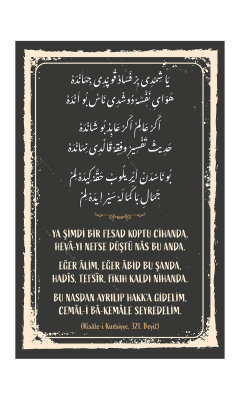 يا شمدى بر فساد قوپدى جهانده
هواى نفسه دوشدى ناس بو آنده
اگر عالم اگر عابد بو شانده
حديث تفسير وفقه قالدى نهانده
بو ناسدن آيريلوب حقه كيده لم
جمال با كماله سير ايده لم
YA ŞİMDİ BİR FESAD KOPTU CİHANDA,
HEVÂ-YI NEFSE DÜŞTÜ NÂS BU ANDA.
EĞER ÂLİM, EĞER ÂBİD BU ŞANDA,
HADİS, TEFSİR, FIKIH KALDI NİHANDA.
BU NASDAN AYRILIP HAKK'A GİDELİM,
CEMÂL-İ BÂ-KEMÂLE SEYREDELİM.
(Risâle-i Kudsiyye, 321. Beyit)